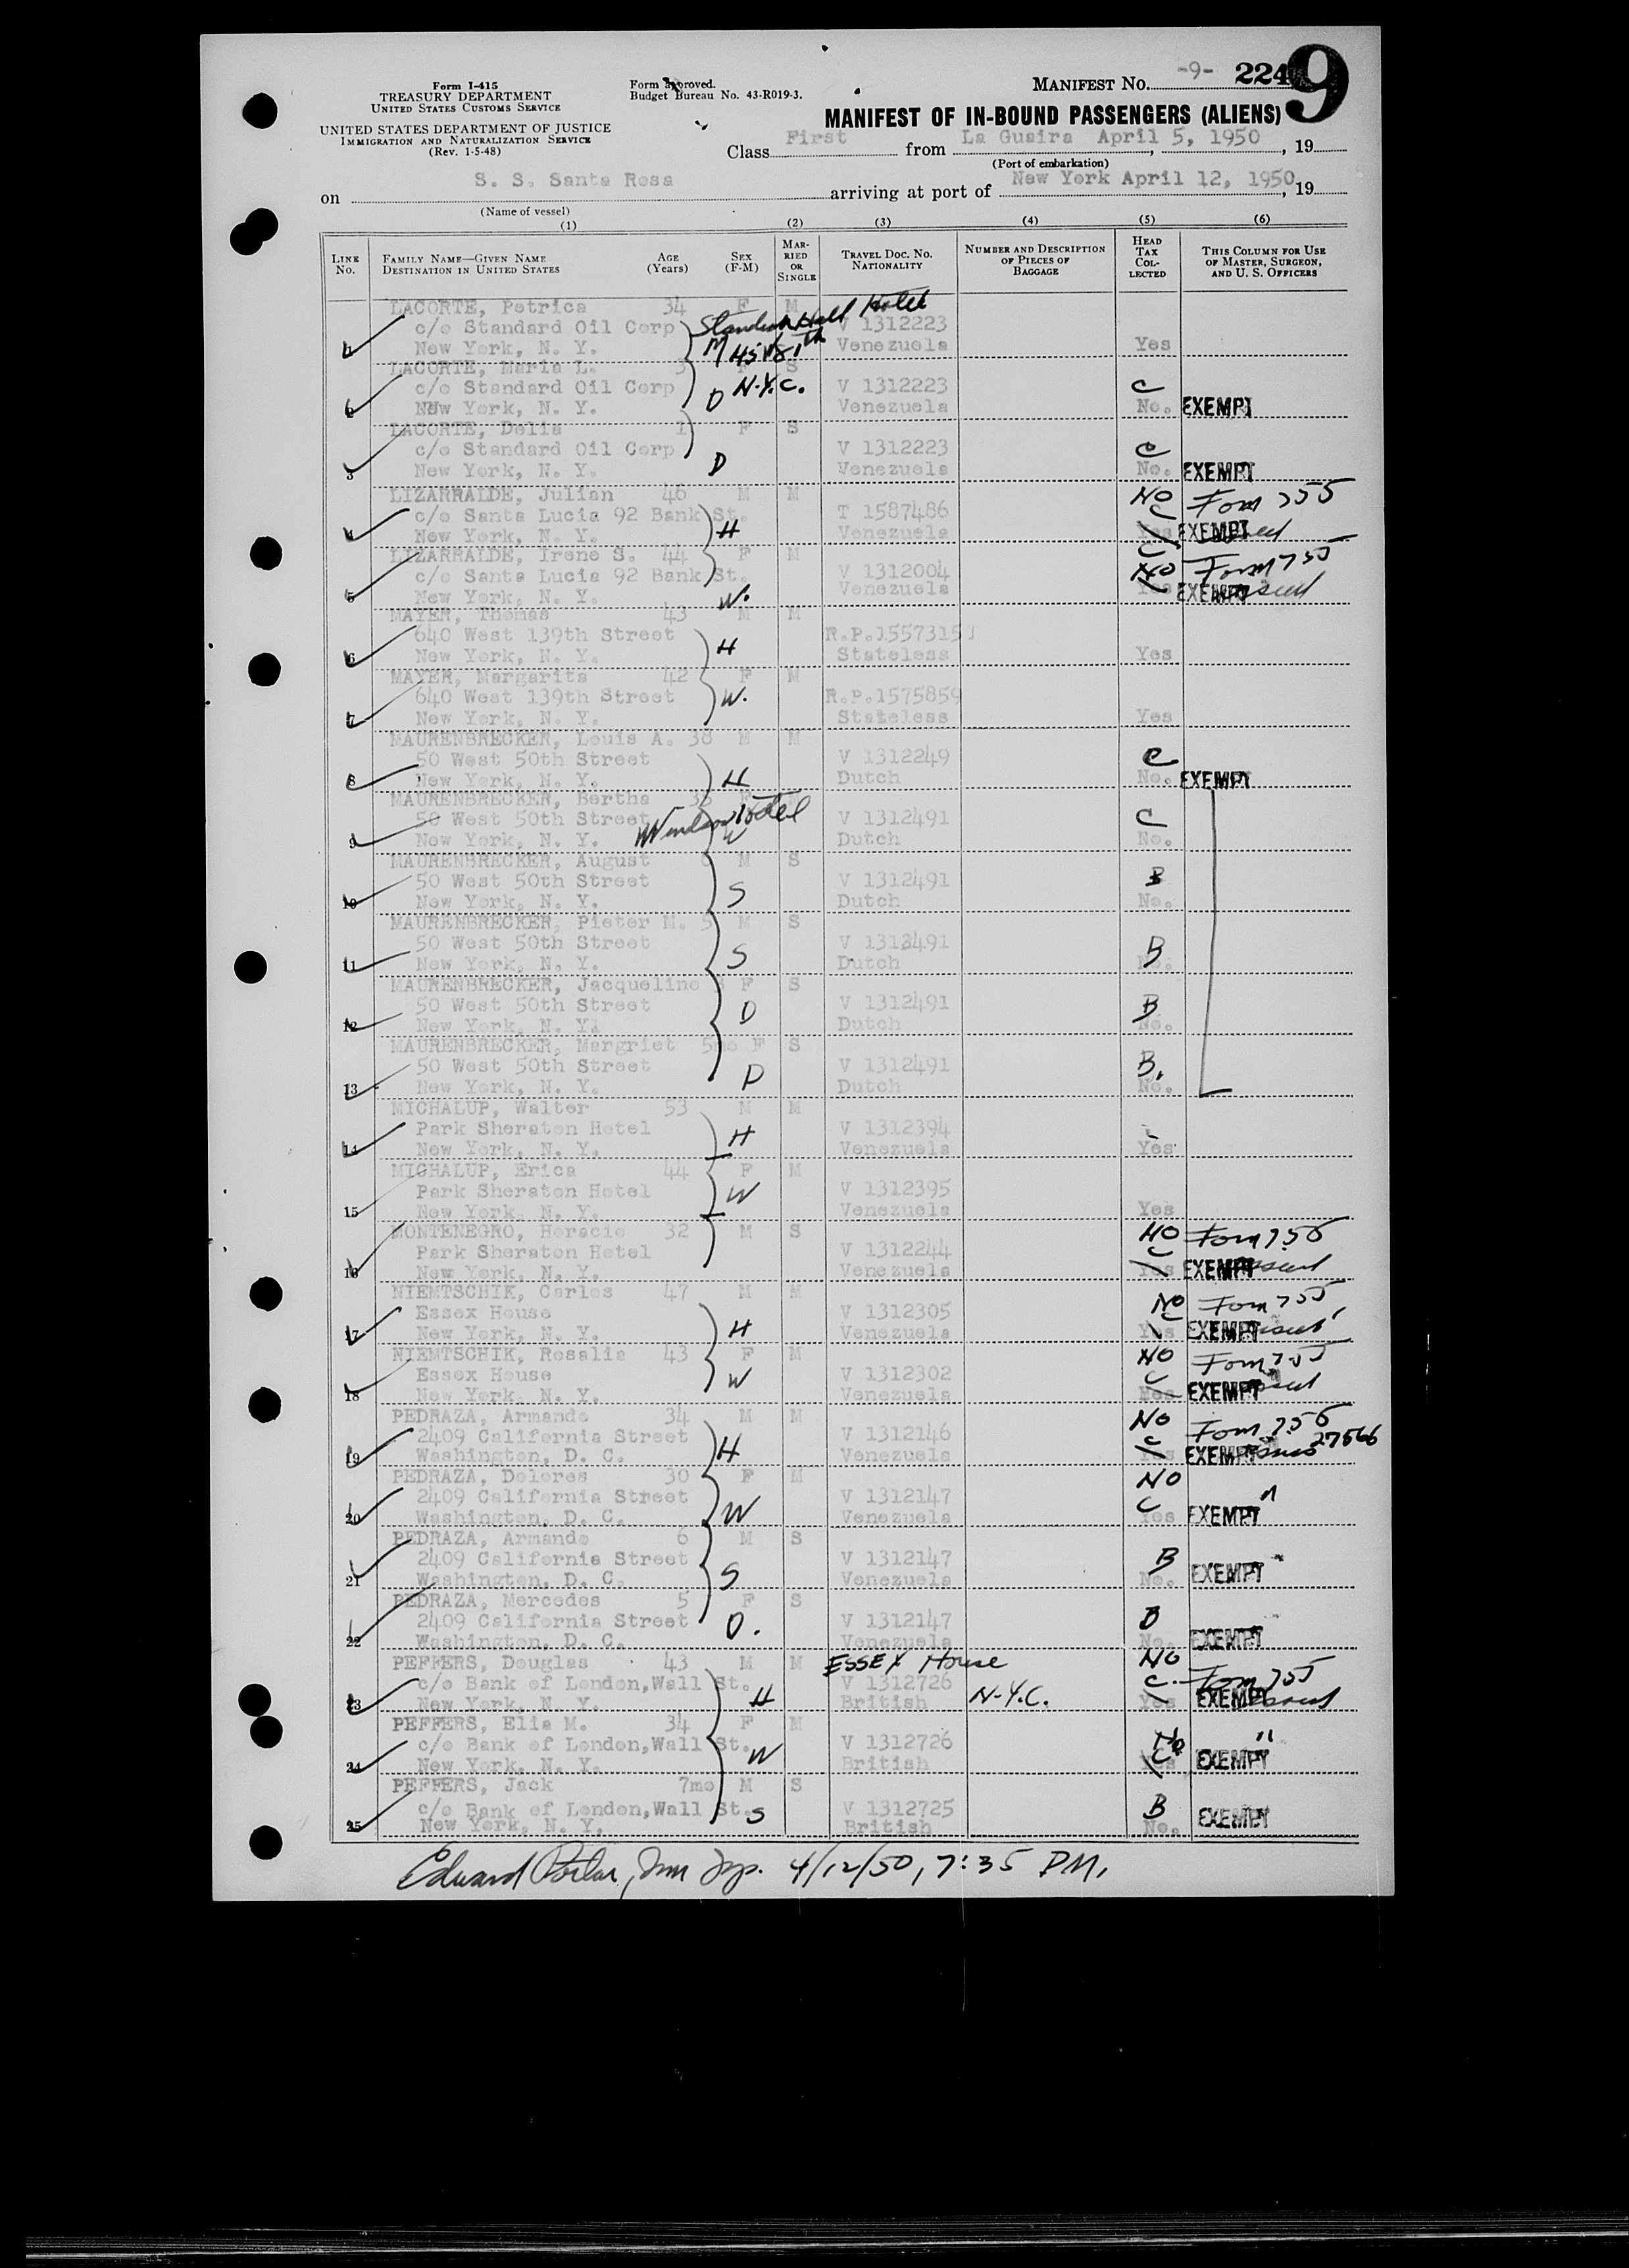 Form I-415
TREASURY DEPARTMENT
UNITED STATES CUSTOMS SERVICE
UNITED STATES DEPARTMENT OF JUSTICE
IMMIGRATION AND NATURALIZATION SERVICE
(Rev. 1-5-48)
Form approved.
Budget Bureau No. 43-R019-3.
MANIFEST No. -9- 224 9
MANIFEST OF IN-BOUND PASSENGERS (ALIENS)
Class First from La Guaira April 5, 1950, 19
(Port of embarkation)
on S. S. Santa Rosa arriving at port of New York April 12, 1950, 19
(Name of vessel)
(1) (2) (3) (4) (5) (6)
LINE No. FAMILY NAME—GIVEN NAME DESTINATION IN UNITED STATES AGE (Years) SEX (F-M) MARRIED OR SINGLE TRAVEL DOC. NO. NATIONALITY NUMBER AND DESCRIPTION OF PIECES OF BAGGAGE HEAD TAX COLLECTED THIS COLUMN FOR USE OF MASTER, SURGEON, AND U. S. OFFICERS
LACORTE, Patrica 34 F M Hall Hotel
c/o Standard Oil Corp V 1312223
1 New York, N. Y. M Venezuela Yes
LACORTE, Maria L. 3 F S
c/o Standard Oil Corp D N.Y.C. V 1312223 C
2 New York, N. Y. Venezuela No. EXEMPT
LACORTE, Delia 1 F S
c/o Standard Oil Corp V 1312223 C
3 New York, N. Y. D Venezuela No. EXEMPT
LIZARRALDE, Julian 46 M M NO Form 755
c/o Santa Lucia 92 Bank St. T 1587486 C
4 New York, N. Y. H Venezuela Yes EXEMPT
LIZARRALDE, Irene S. 44 F M C
c/o Santa Lucia 92 Bank St. V 1312004 NO Form 755
5 New York, N. Y. W. Venezuela Yes EXEMPT
MAYER, Thomas 43 M M
640 West 139th Street R.P.1557315
6 New York, N. Y. H Stateless Yes
MAYER, Margarita 42 F M
640 West 139th Street W. R.P.1575859
7 New York, N. Y. Stateless Yes
MAURENBRECKER, Louis A. 38 M M
50 West 50th Street V 1312249 C
8 New York, N. Y. H Dutch No. EXEMPT
MAURENBRECKER, Bertha
50 West 50th Street Windsor Hotel V 1312491 C
9 New York, N. Y. W Dutch No.
MAURENBRECKER, August M S
50 West 50th Street V 1312491 B
10 New York, N. Y. S Dutch No.
MAURENBRECKER, Pieter M. 5 M S
50 West 50th Street V 1312491 B
11 New York, N. Y. S Dutch No.
MAURENBRECKER, Jacqueline F S
50 West 50th Street D V 1312491 B
12 New York, N. Y. Dutch No.
MAURENBRECKER, Margriet 5mo F S
50 West 50th Street V 1312491 B.
13 New York, N. Y. D Dutch No.
MICHALUP, Walter 53 M M
Park Sheraton Hotel H V 1312394
14 New York, N. Y. Venezuela Yes
MICHALUP, Erica 44 F M
Park Sheraton Hotel W V 1312395
15 New York, N. Y. Venezuela Yes
MONTENEGRO, Horacio 32 M S NO Form 756
Park Sheraton Hotel V 1312244 C
16 New York, N. Y. Venezuela Yes EXEMPT
NIEMTSCHIK, Carlos 47 M M NO Form 755
Essex House V 1312305 C
17 New York, N. Y. H Venezuela Yes EXEMPT
NIEMTSCHIK, Rosalia 43 F M NO Form 755
Essex House W V 1312302 C
18 New York, N. Y. Venezuela Yes EXEMPT
PEDRAZA, Armando 34 M M NO Form 756
2409 California Street V 1312146 C 27566
19 Washington, D. C. H Venezuela Yes EXEMPT
PEDRAZA, Dolores 30 F M NO
2409 California Street V 1312147 C "
20 Washington, D. C. W Venezuela Yes EXEMPT
PEDRAZA, Armando 6 M S
2409 California Street V 1312147 B "
21 Washington, D. C. S Venezuela No. EXEMPT
PEDRAZA, Mercedes 5 F S
2409 California Street D. V 1312147 B
22 Washington, D. C. Venezuela No. EXEMPT
PEFFERS, Douglas 43 M M ESSEX House NO
c/o Bank of London, Wall St. V 1312726 C. Form 755
23 New York, N. Y. H British N.Y.C. Yes EXEMPT
PEFFERS, Elia M. 34 F M
c/o Bank of London, Wall St. V 1312726 No "
24 New York, N. Y. W British C Yes EXEMPT
PEFFERS, Jack 7mo M S
c/o Bank of London, Wall St. S V 1312725 B
25 New York, N. Y. British No. EXEMPT
Edward 4/12/50, 7:35 PM.